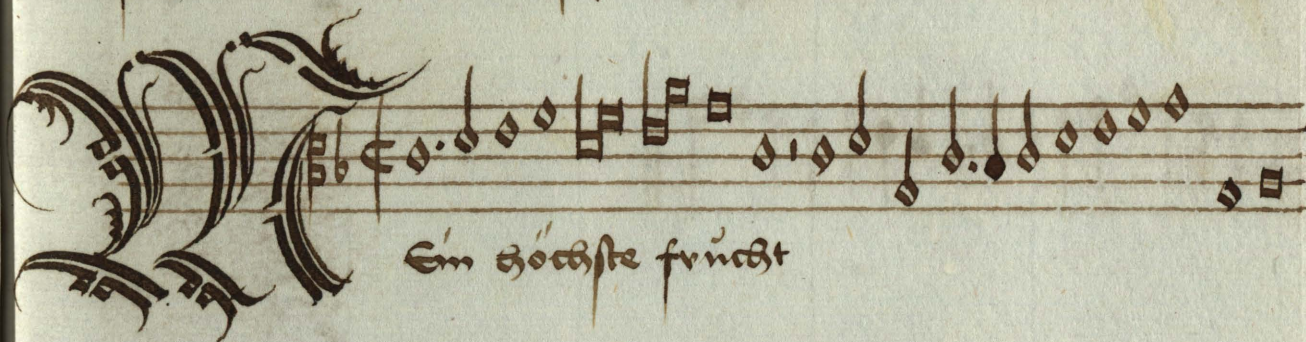 M Ein höchste frücht